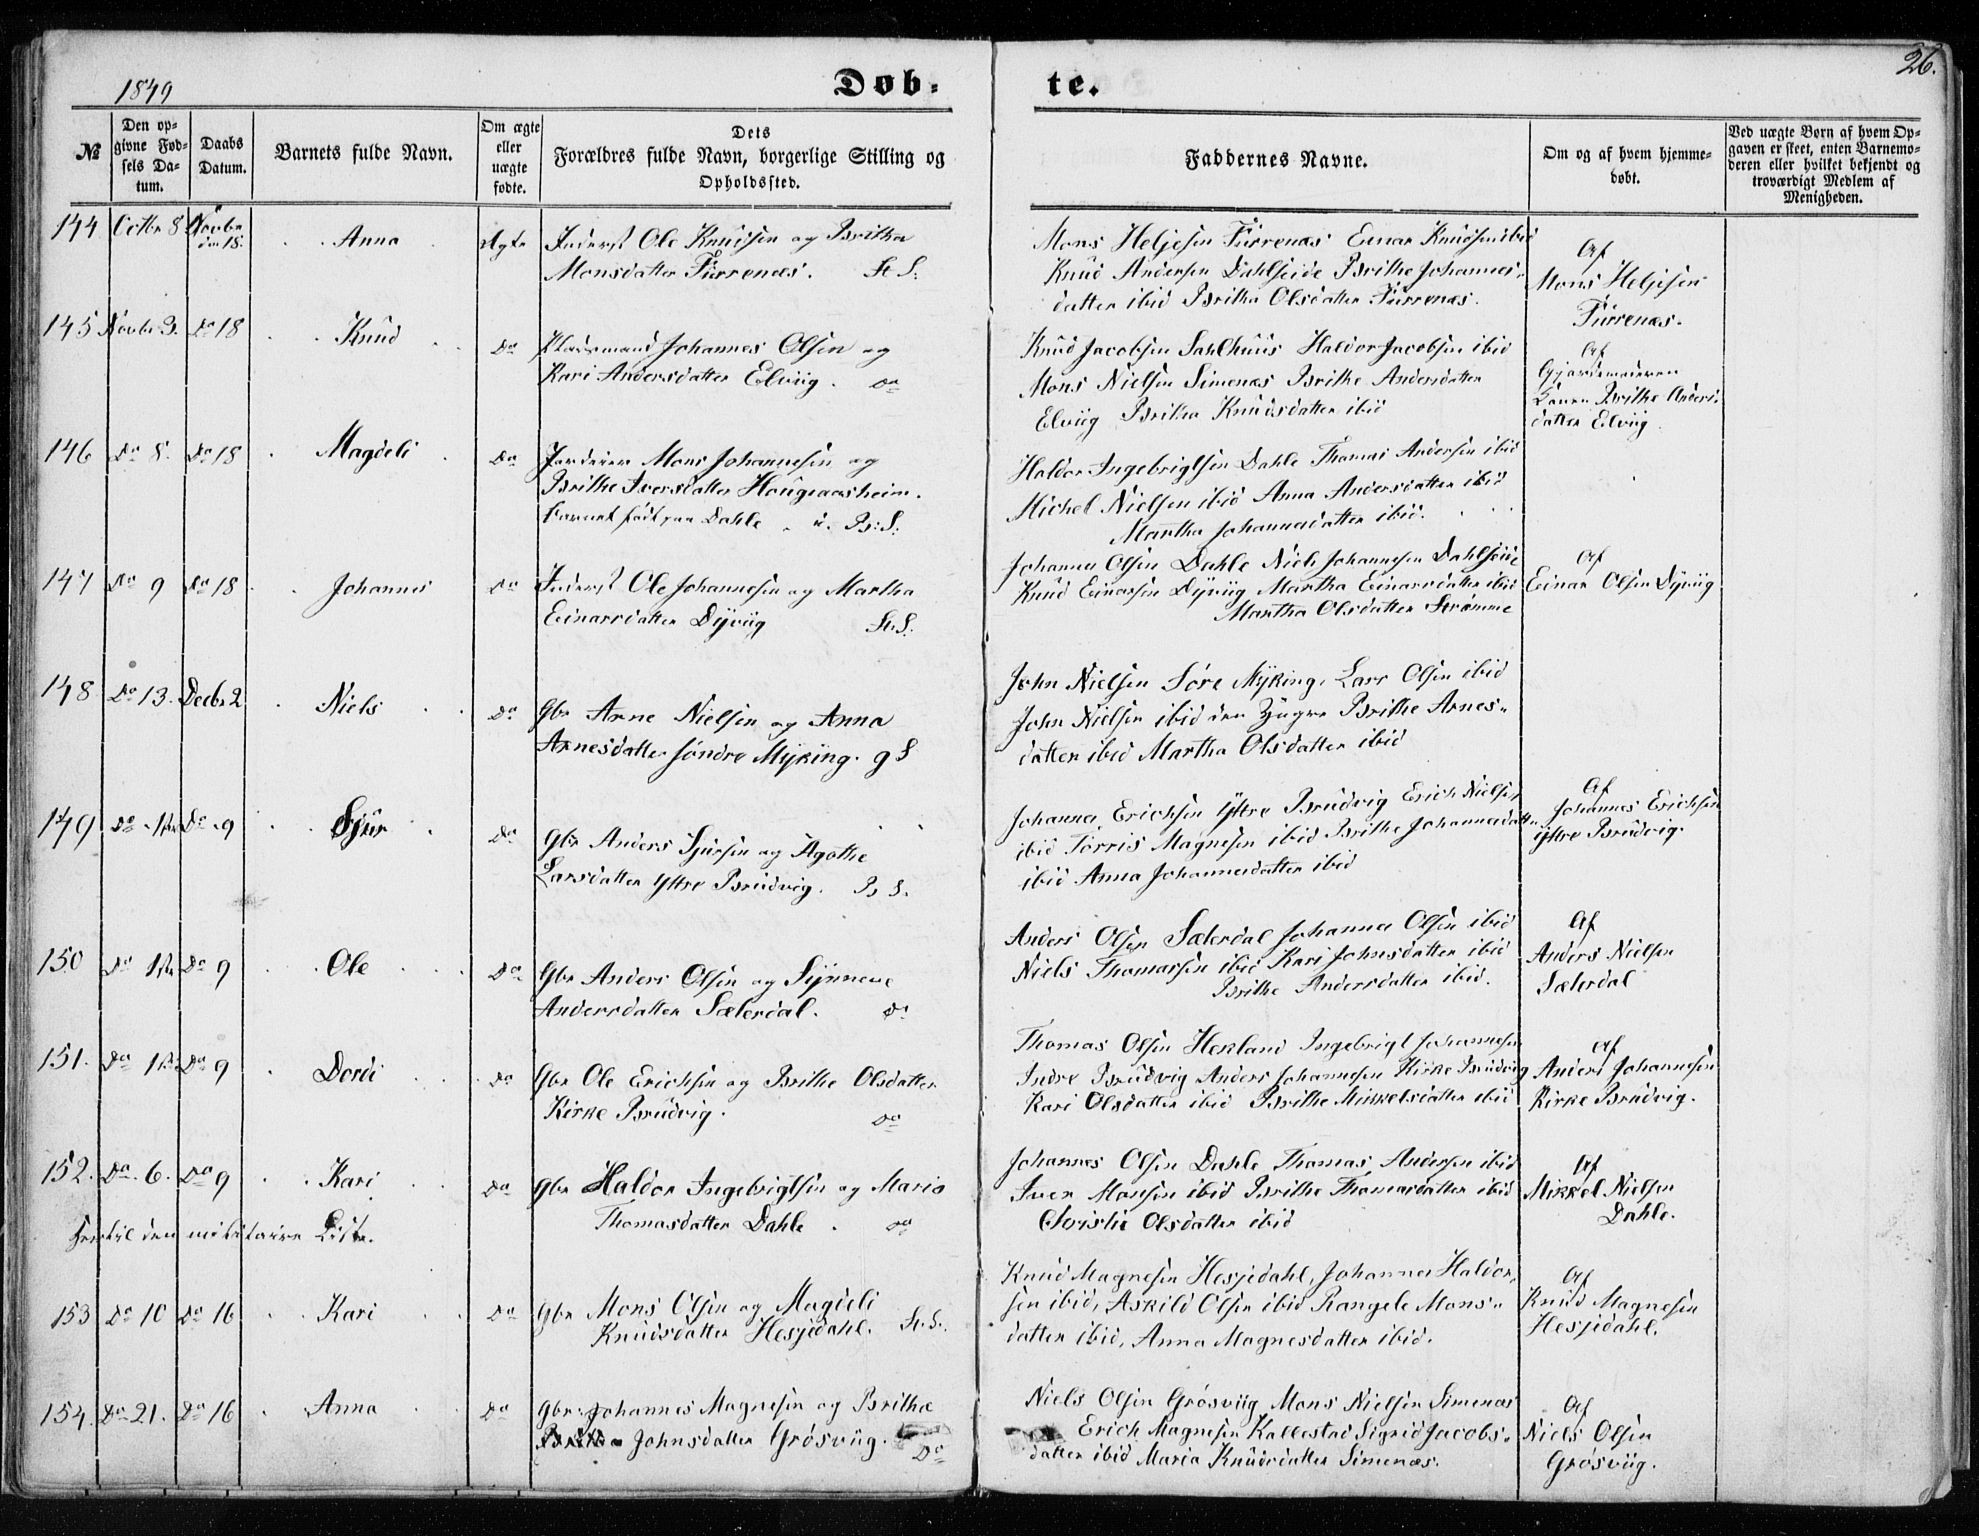 1849
Døb-
te.
26.
№
Den op-
givne Fød-
sels Da-
tum.
Daabs
Datum.
Barnets fulde Navn.
Om ægte
eller
uægte
fødte.
Dets
Forældres fulde Navn, borgerlige Stilling og
Opholdssted.
Faddernes Navne.
Om og af hvem hjemme-
døbt.
Ved uægte Børn af hvem Op-
gaven er skeet, enten Barnemo-
deren eller hvilket bekjendt og
troværdigt Medlem af
Menigheden.
144 Octbr 8 Novbr
18.
Anna
Ægte
Inderst Ole Knudsen og Britha
Monsdatter Furrenæs. St. S.
Mons Heljesen Furrenæs Einar Knudsen ibid
Knud Andersen Dahlseide Brithe Johannes-
datter ibid Britha Olsdatter Furrenæs.
Af
Mons Heljesen
Furrenæs.
145 Novbr 3. Do 18
Knud
Do
Pladsmand Johannes Olsen og
Kari Andersdatter Elviig. Do
Knud Jacobsen Sahlhuus Haldor Jacobsen ibid
Mons Nielsen Simenæs Brithe Andersdatter
Elviig Britha Knudsdatter ibid
Af
Gjordemoderen
Konen Brithe Anders-
datter Elviig
146 Do 8. Do 18
Magdeli
Do
Mons Johannesen og
Brithe Iversdatter Hougaasheim.
Barnet født paa Dahle. Br: S.
Haldor Ingebrigtsen Dahle Thomas Andersen ibid
Michel Nielsen ibid Anna Andersdatter ibid
Martha Johannesdatter ibid.
147 Do 9 Do 18
Johannes
Do
Inderst Ole Johannesen og Martha
Einarsdatter Dyviig St. S.
Johannes Olsen Dahle Niels Johannesen Dahlseide
Knud Einarsen Dyviig Martha Einarsdatter ibid
Martha Olsdatter Strømme
Af
Einar Olsen Dyviig
148 Do 13. Decbr 2
Niels
Do
Gbr Arne Nielsen og Anna
Arnesdatter søndre Myking. g S
John Nielsen Søre Myking, Lars Olsen ibid
John Nielsen ibid den Yngre Brithe Arnes-
datter ibid Martha Olsdatter ibid
149 Do Do 9
Sjur
Do
Gbr Anders Sjursen og Agothe
Larsdatter Yttre Brudvig. Br S.
Johannes Erichsen Yttre Brudvig Erich Nielsen
ibid Torris Magnesen ibid Brithe Johannesdatter
ibid Anna Johannesdatter ibid
Af
Johannes Erichsen
Yttre Brudvig.
150 Do Do 9
Ole
Do
Gbr Anders Olsen og Synneve
Andersdatter Sæterdal. Do
Anders Olsen Sæterdal Johannes Olsen ibid
Niels Thomassen ibid Kari Johnsdatter ibid
Brithe Andersdatter ibid.
Af
Anders Nielsen
Sæterdal
151. Do Do 9
Dordi
Do
Gbr Ole Erichsen og Brithe Olsdatter
Kirke Brudvig. Do
Thomas Olsen Herland Ingebrigt Johannesen
Indre Brudvig Anders Johannesen Kirke Brudvig
Kari Olsdatter ibid Brithe Mikkelsdatter ibid
Af
Anders Johannesen
Kirke Brudvig.
152. Do 6. Do 9
Kari
Do
Gbr Haldor Ingebrigtsen og Maria
Thomasdatter Dahle. Do
den militaire Liste.
Johannes Olsen Dahle Thomas Andersen ibid
Iver Monsen ibid Brithe Thomasdatter ibid
Christi Olsdatter ibid
Af
Mikkel Nielsen
Dahle.
153 Do 10 Do 16
Kari
Do
Gbr Mons Olsen og Magdeli
Knudsdatter Hesjedahl. St. S.
Knud Magnesen Hesjedahl, Johannes Haldor-
sen ibid, Askild Olsen ibid Rangele Mons-
datter ibid, Anna Magnesdatter ibid.
Af
Knud Magnesen
Hesjedahl.
154. Do 21. Do 16
Anna
Do
Gbr Johannes Magnesen og Britha
Johnsdatter Grøsviig. Do
Niels Olsen Grøsviig Mons Nielsen Simenæs
Erich Magnesen Kallestad Sigrid Jacobs-
datter ibid Maria Knudsdatter Simenæs.
Af
Niels Olsen
Grøsviig.